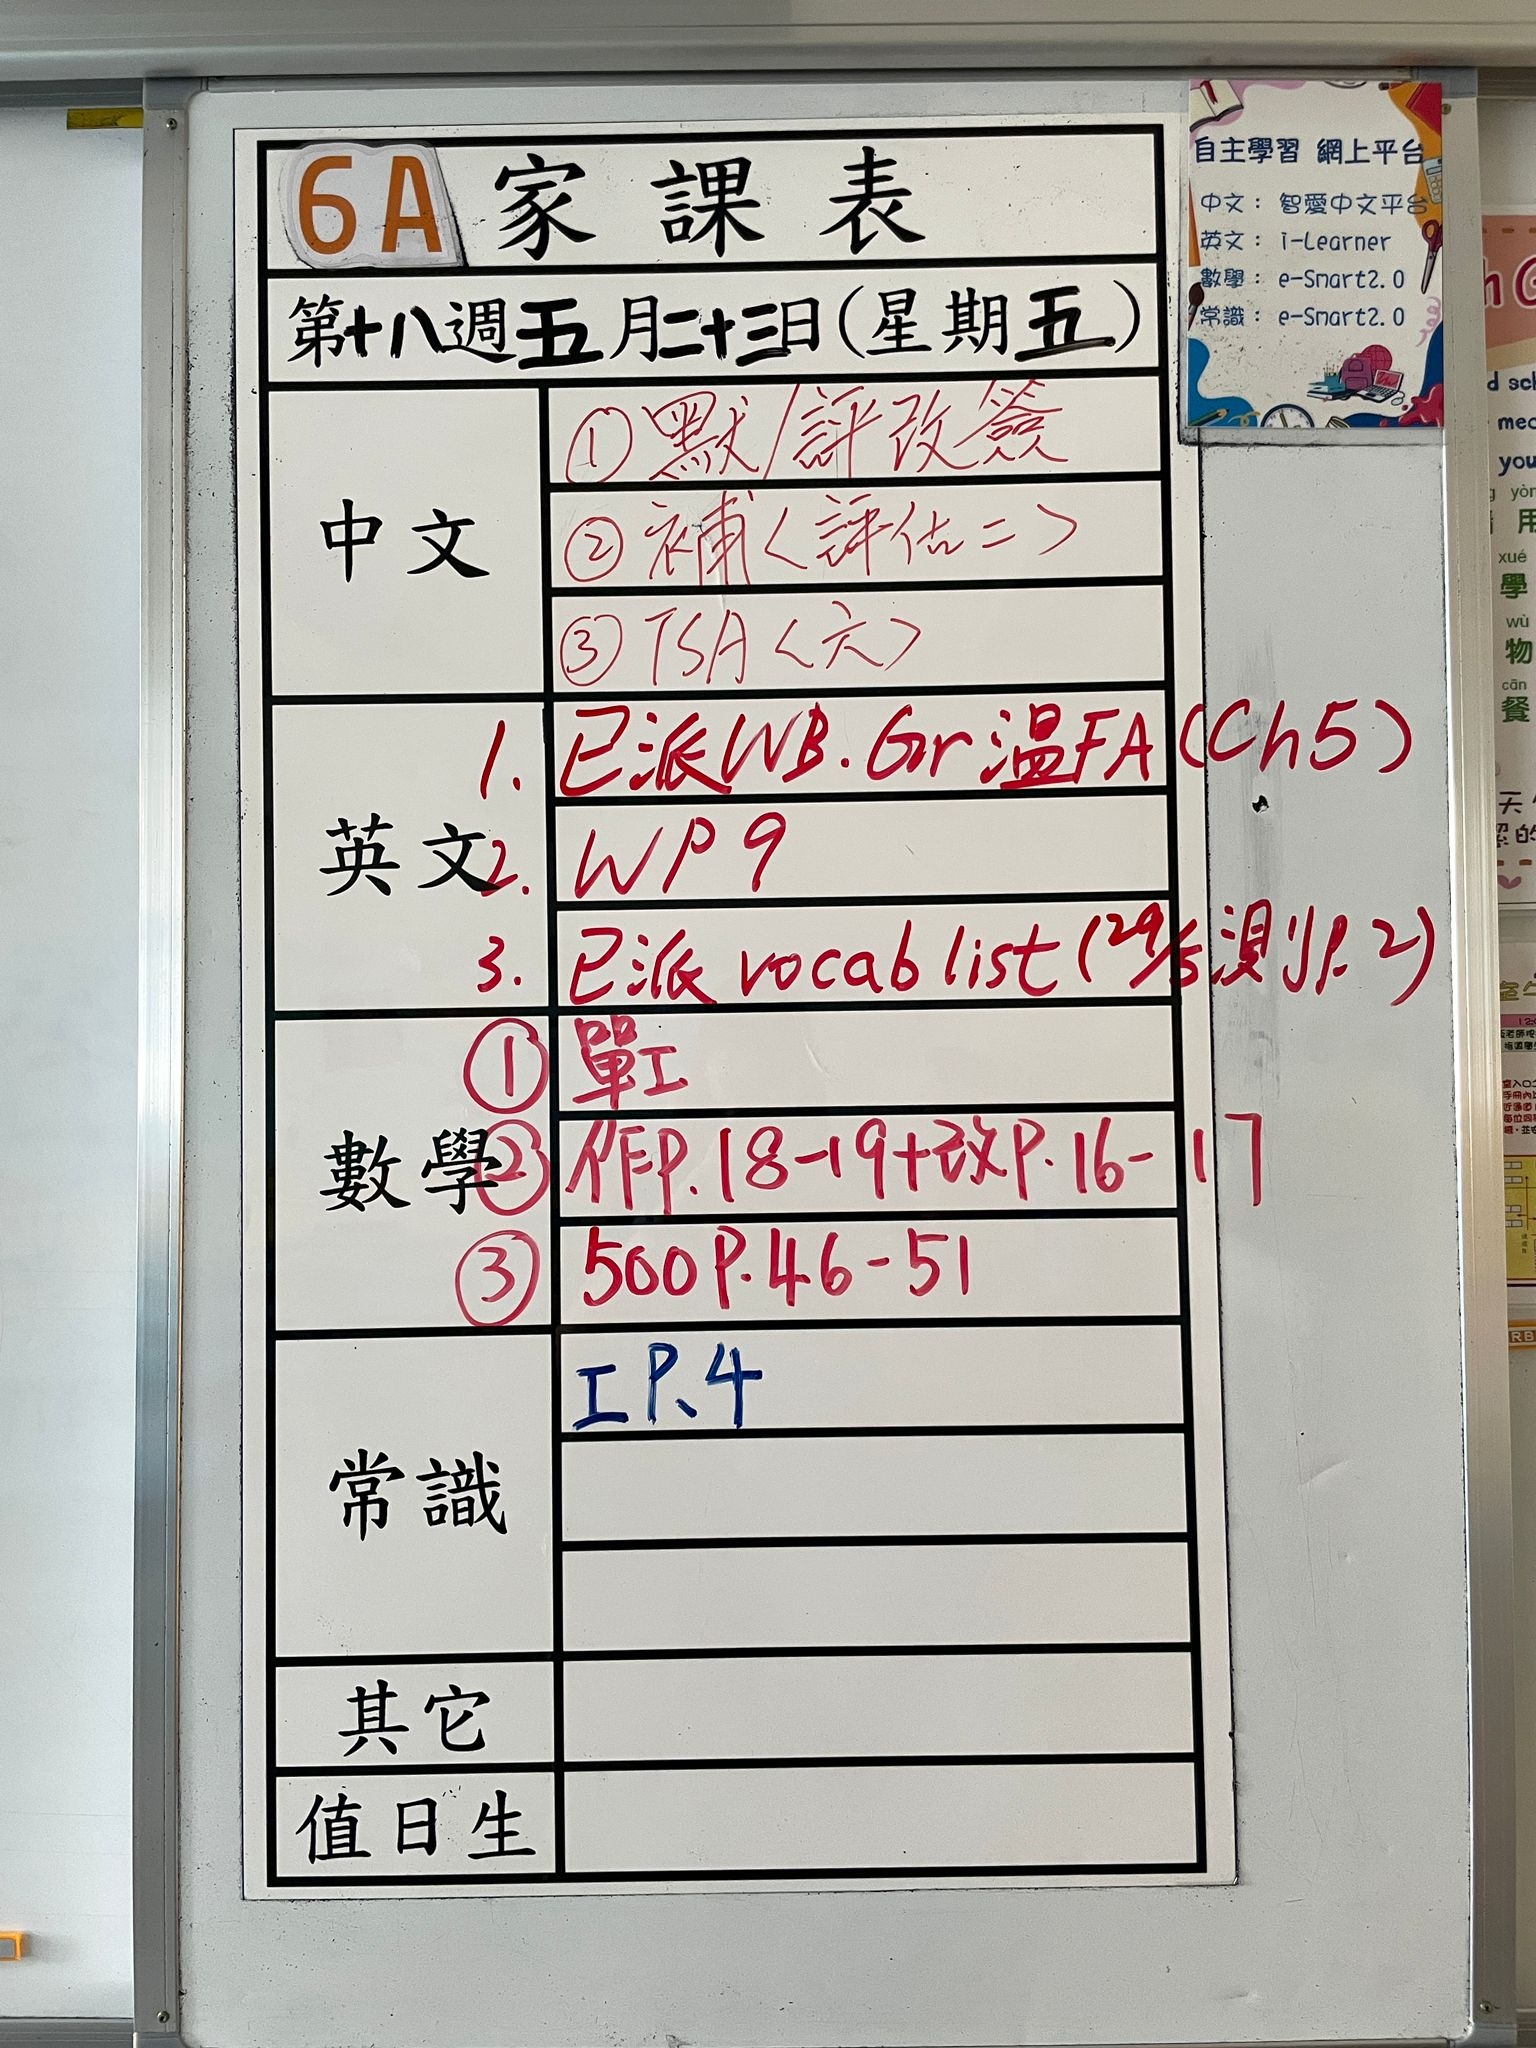 6A 家課表
第十八週五月二十三日(星期五)
中文
① 默/評改簽
② 補〈評估二〉
③ TSA〈六〉
英文
1. 已派WB.Gr溫FA(Ch5)
2. WP9
3. 已派vocab list(29/5測P.2)
數學
① 單工
② 作P.18-19+改P.16-17
③ 500P.46-51
常識
工P.4
其它
值日生
自主學習 網上平台
中文: 智愛中文平台
英文: i-Learner
數學: e-Smart2.0
常識: e-Smart2.0
yòng
用
xué
學
wù
物
cān
餐